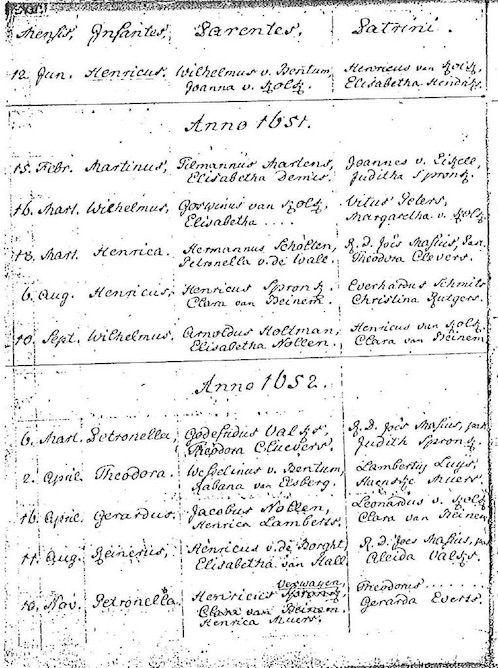 Mensis, Infantes, Parentes, Patrini.
12. Jun. Henricus. Wilhelmus v. Bentum, Henricus van Holtz,
Joanna v. Holtz. Elisabetha Hendrix.
Anno 1651.
15. Febr. Martinus, Tilmannus Martens, Joannes v. Eickele,
Elisabetha Demis. Juditha Spronk.
16. Mart. Wilhelmus, Goswinus van Holtz, Vitus Peters,
Elisabetha .... Margaretha v. Holtz.
18. Mart. Henrica. Hermannus Scholten, R. D. Joes Masius, Par.
Petronella v. de Wale. Theodora Clevers.
6. Aug. Henricus, Henricus Spronk, Everhardus Schmits
Clara van Beinem. Christina Rutgers.
10. Sept. Wilhelmus, Arnoldus Holtman, Henricus van Holtz,
Elisabetha Nollen, Clara van Beinem
Anno 1652.
6. Mart. Petronella, Godefridus Valks, R. D. Joes Masius, par
Theodora Cluevers. Judith Spronk.
2. April. Theodora. Wesselinus v. Bentum, Lambertus Luijs,
Rabana van Elsberg.
16. April. Gerardus, Jacobus Nollen, Leonardus v. Holtz
Henrica Lamberts. Clara van Beinem
11. Aug. Reinerus, Henricus v. de Borght, R. D. Joes Masius, pa
Elisabetha van Hall Aleida Valks.
Verwayen,
10. Nov. Petronella. Henricus Spronk, Theodorus ......
Clara van Beinem. Gerarda Everts.
Henrica Muers.